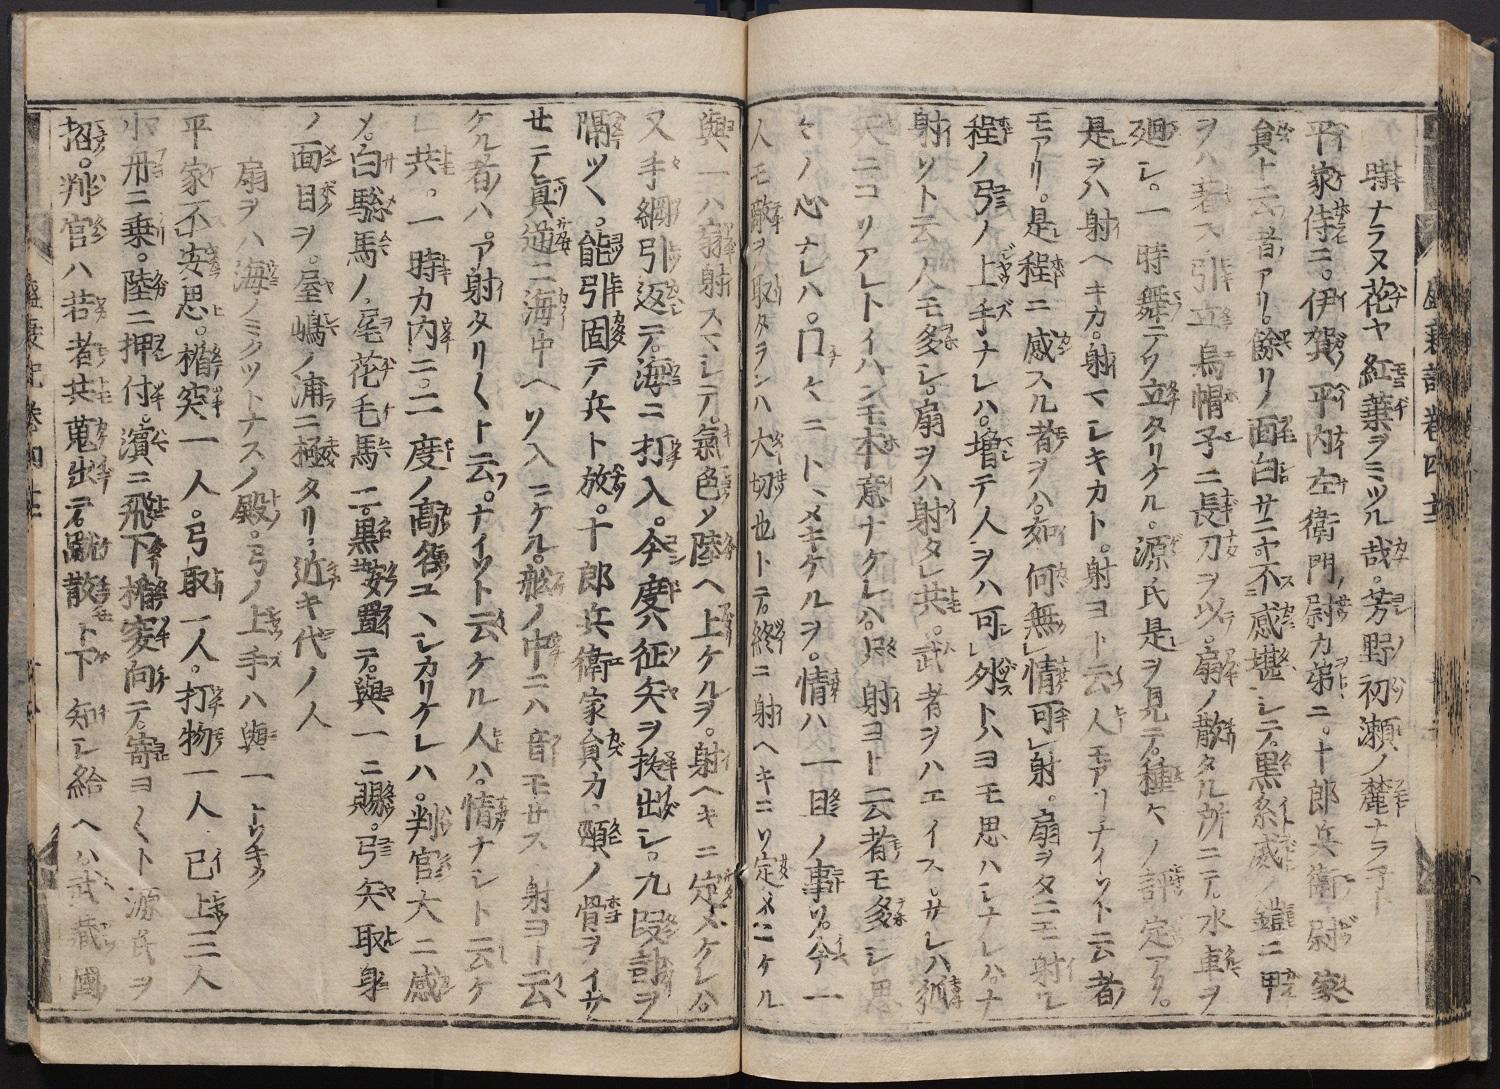 時ナラヌ花ヤ紅葉ヲミツル哉。芳野初瀬ノ麓ナラネト
平家侍ニ。伊賀平内左衛門尉カ弟ニ。十郎兵衛尉家
員ト云者アリ。餘リノ面白サニヤ不感堪シテ。黒糸威ノ鎧ニ甲
ヲハ著ス。引立烏帽子ニ長刀ヲ以。扇ノ散タル所ニテ。水車ヲ
廻シ。一時舞テソ立タリケル。源氏是ヲ見テ。種々ノ評定アリ。
是ヲハ射ヘキカ。射マシキカト。射ヨト云人モアリ。ナイソト云者
モアリ。是程ニ感スル者ヲハ。如何無情可射。扇ヲタニモ射ル
程ノ弓ノ上手ナレハ。増テ人ヲハ可外トハヨモ思ハシナレハ。ナ
射ソト云人モ多シ。扇ヲハ射タレ共。武者ヲハエイス。サレハ狐
矢ニコソアレトイハンモ本意ナケレハ。只射ヨト云者モ多シ。思
々ノ心ナレハ。口々ニトヽメキケルヲ。情ハ一旦ノ事ソ。今一
人モ敵ヲ取タランハ大切也トテ。終ニ射ヘキニソ定メニケル
與一ハ扇射スマシテ。氣色ソ陸ヘ上ケルヲ。射ヘキニ定メケレハ。
又手綱引返テ。海ニ打入。今度ハ征矢ヲ抜出シ。九段計ヲ
隔ツヽ。能引固テ兵ト放。十郎兵衛家員カ。頸ノ骨ヲイサ
セテ眞逆ニ海中ヘソ入ニケル。舩ノ中ニハ音モセス。射ヨト云
ケル者ハ。ア射タリ〱ト云。ナイソト云ケル人ハ。情ナシト云ケ
レ共。一時カ内ニ。二度ノ高名ユヽシカリケレハ。判官大ニ感
メ。白驄馬ノ。尾花毛馬ニ。黒鞍置テ。與一ニ賜。弓矢取身
ノ面目ヲ。屋嶋ノ浦ニ極タリ。近キ代ノ人
扇ヲハ海ノミクツトナスノ殿。弓ノ上手ハ與一トソキク
平家不安思。楯突一人。弓取一人。打物一人已上三人
小舟ニ乗。陸ニ押付。濱ニ飛下楯突向テ。寄ヨ〱ト源氏ヲ
招。判官ハ若者共蒐出テ。蹴散ト下知シ給ヘハ武藏國